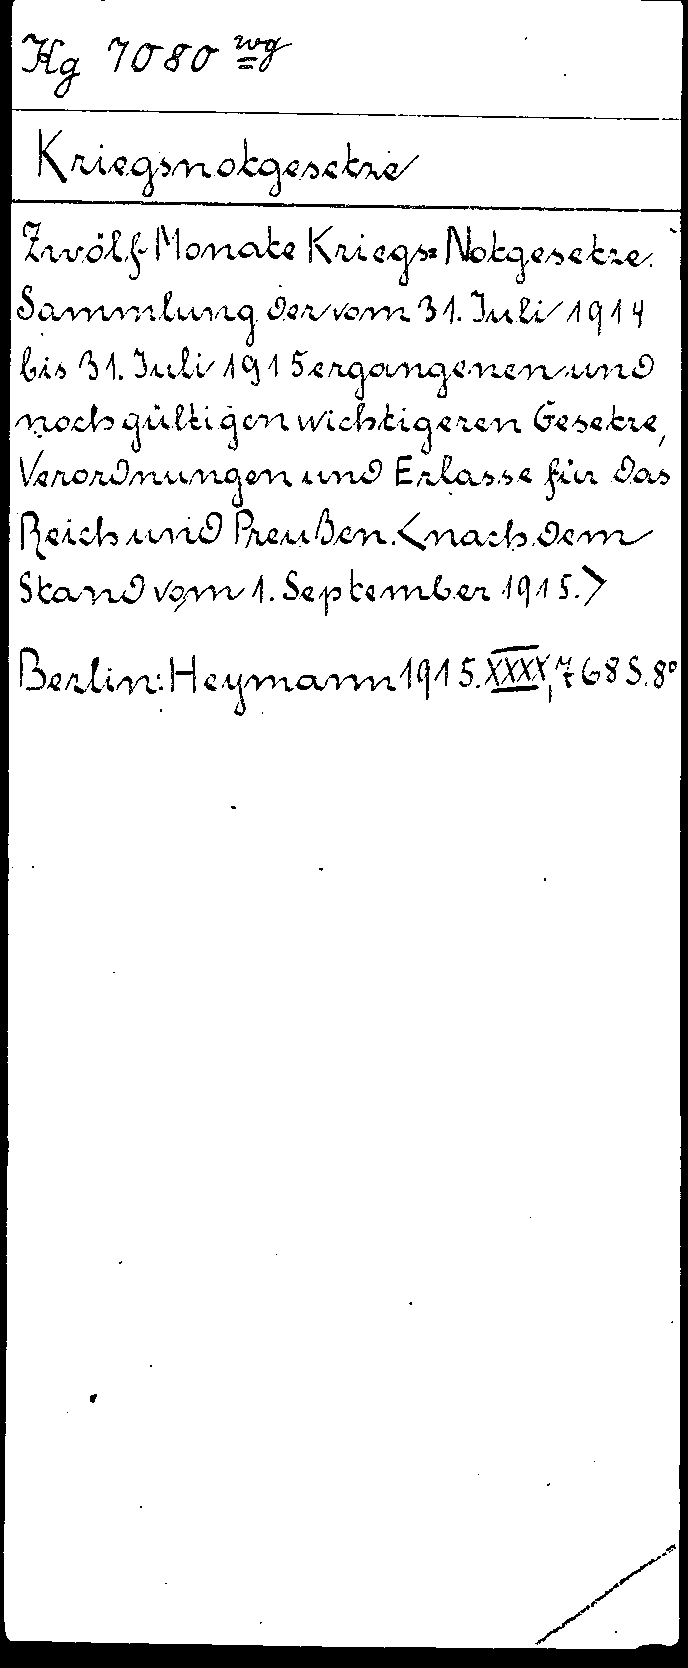 Kg 7080 wg
Kriegsnotgesetze
Zwölf Monate Kriegs=Notgesetze.
Sammlung der vom 31. Juli 1914
bis 31. Juli 1915 ergangenen und
noch gültigen wichtigeren Gesetze,
Verordnungen und Erlasse für das
Reich und Preußen. <nach dem
Stand vom 1. September 1915.>
Berlin: Heymann 1915. XXXX, 768 S. 8°